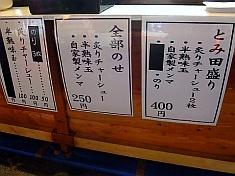 とみ田盛り
・炙りチャーシュー2枚
・半熟味玉
・自家製メンマ
・のり
400円
全部のせ
・炙りチャーシュー
・半熟味玉
・自家製メンマ
250円
のり
炙りチャーシュー
半熟味玉
100
100
50